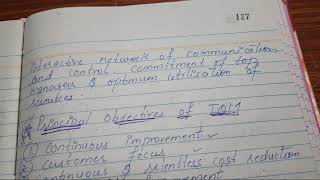 127
Interactive network of communication
and control, commitment of top
managers & optimum utilisation of
resources.
* Principal Objectives of TQM
① Continuous improvement ✓
② Customer focus ✓
Continuous & relentless cost reduction